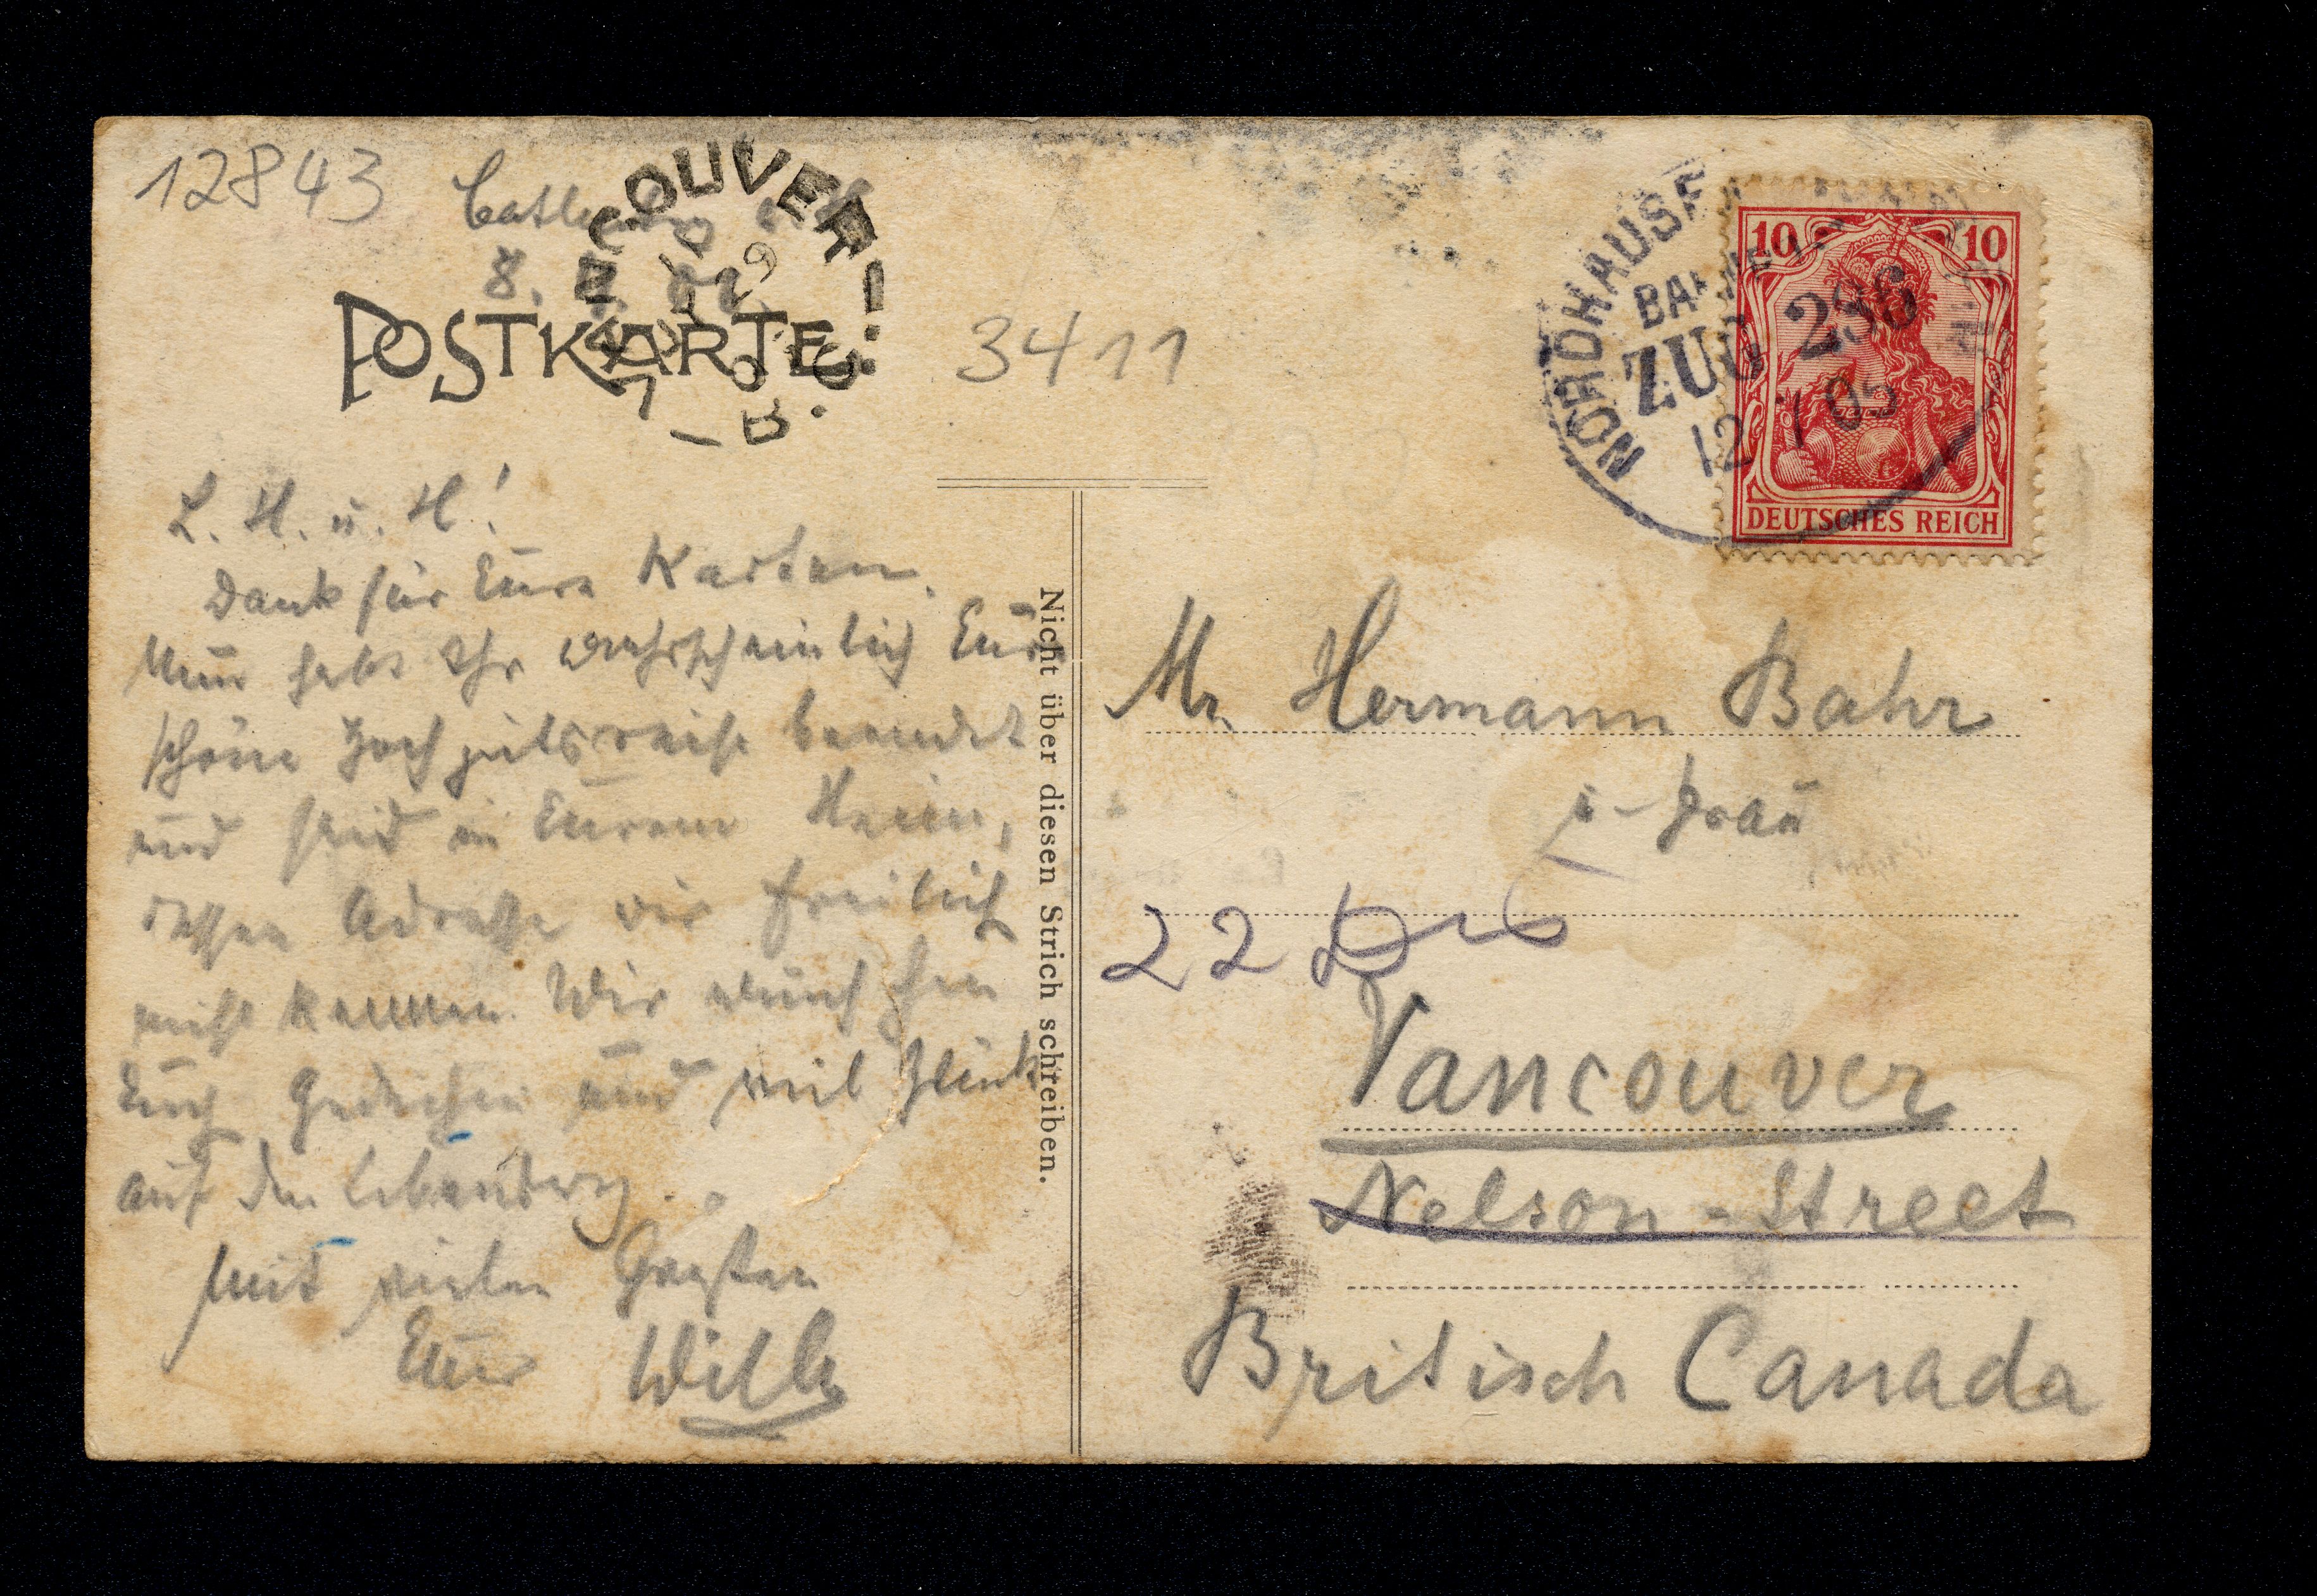 12843
8.
COUVER
B.C.
POSTKARTE
3411
NORDHAUSE
BA
ZUG 296
12 7 09
10 10
DEUTSCHES REICH
L. H. u. H!
Dank für Eure Karten.
Nun habt Ihr wahrscheinlich Eure
schöne Hochzeitsreise beendet
und seid in Eurem Heim,
dessen Adresse wir freilich
nicht kennen. Wir wünschen
Euch Gedeihen und viel Glück
auf dem Lebensweg.
Mit vielen Grüßen
Euer Willy
Nicht über diesen Strich schreiben.
Mr. Hermann Bahr
u. Frau
22
Vancouver
Nelson-Street
Britisch Canada